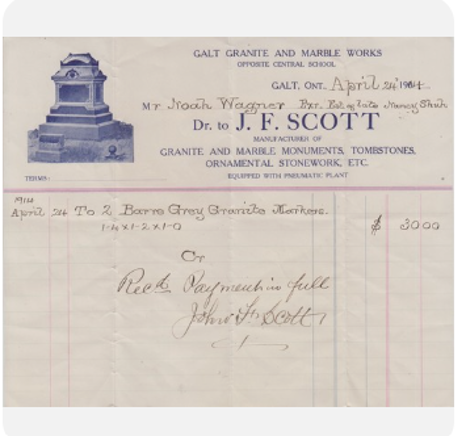 GALT GRANITE AND MARBLE WORKS
OPPOSITE CENTRAL SCHOOL
GALT, ONT. April 24 1914.
Mr Noah Wagner Exr. Est. of late Nancy Shuh
Dr. to J. F. SCOTT
MANUFACTURER OF
GRANITE AND MARBLE MONUMENTS, TOMBSTONES,
ORNAMENTAL STONEWORK, ETC.
TERMS- EQUIPPED WITH PNEUMATIC PLANT
1914
April 24 To 2 Barre Grey Granite Markers. $ 30 00
1-4 x 1-2 x 1-0
Cr
Recd. Payment in full
John F. Scott